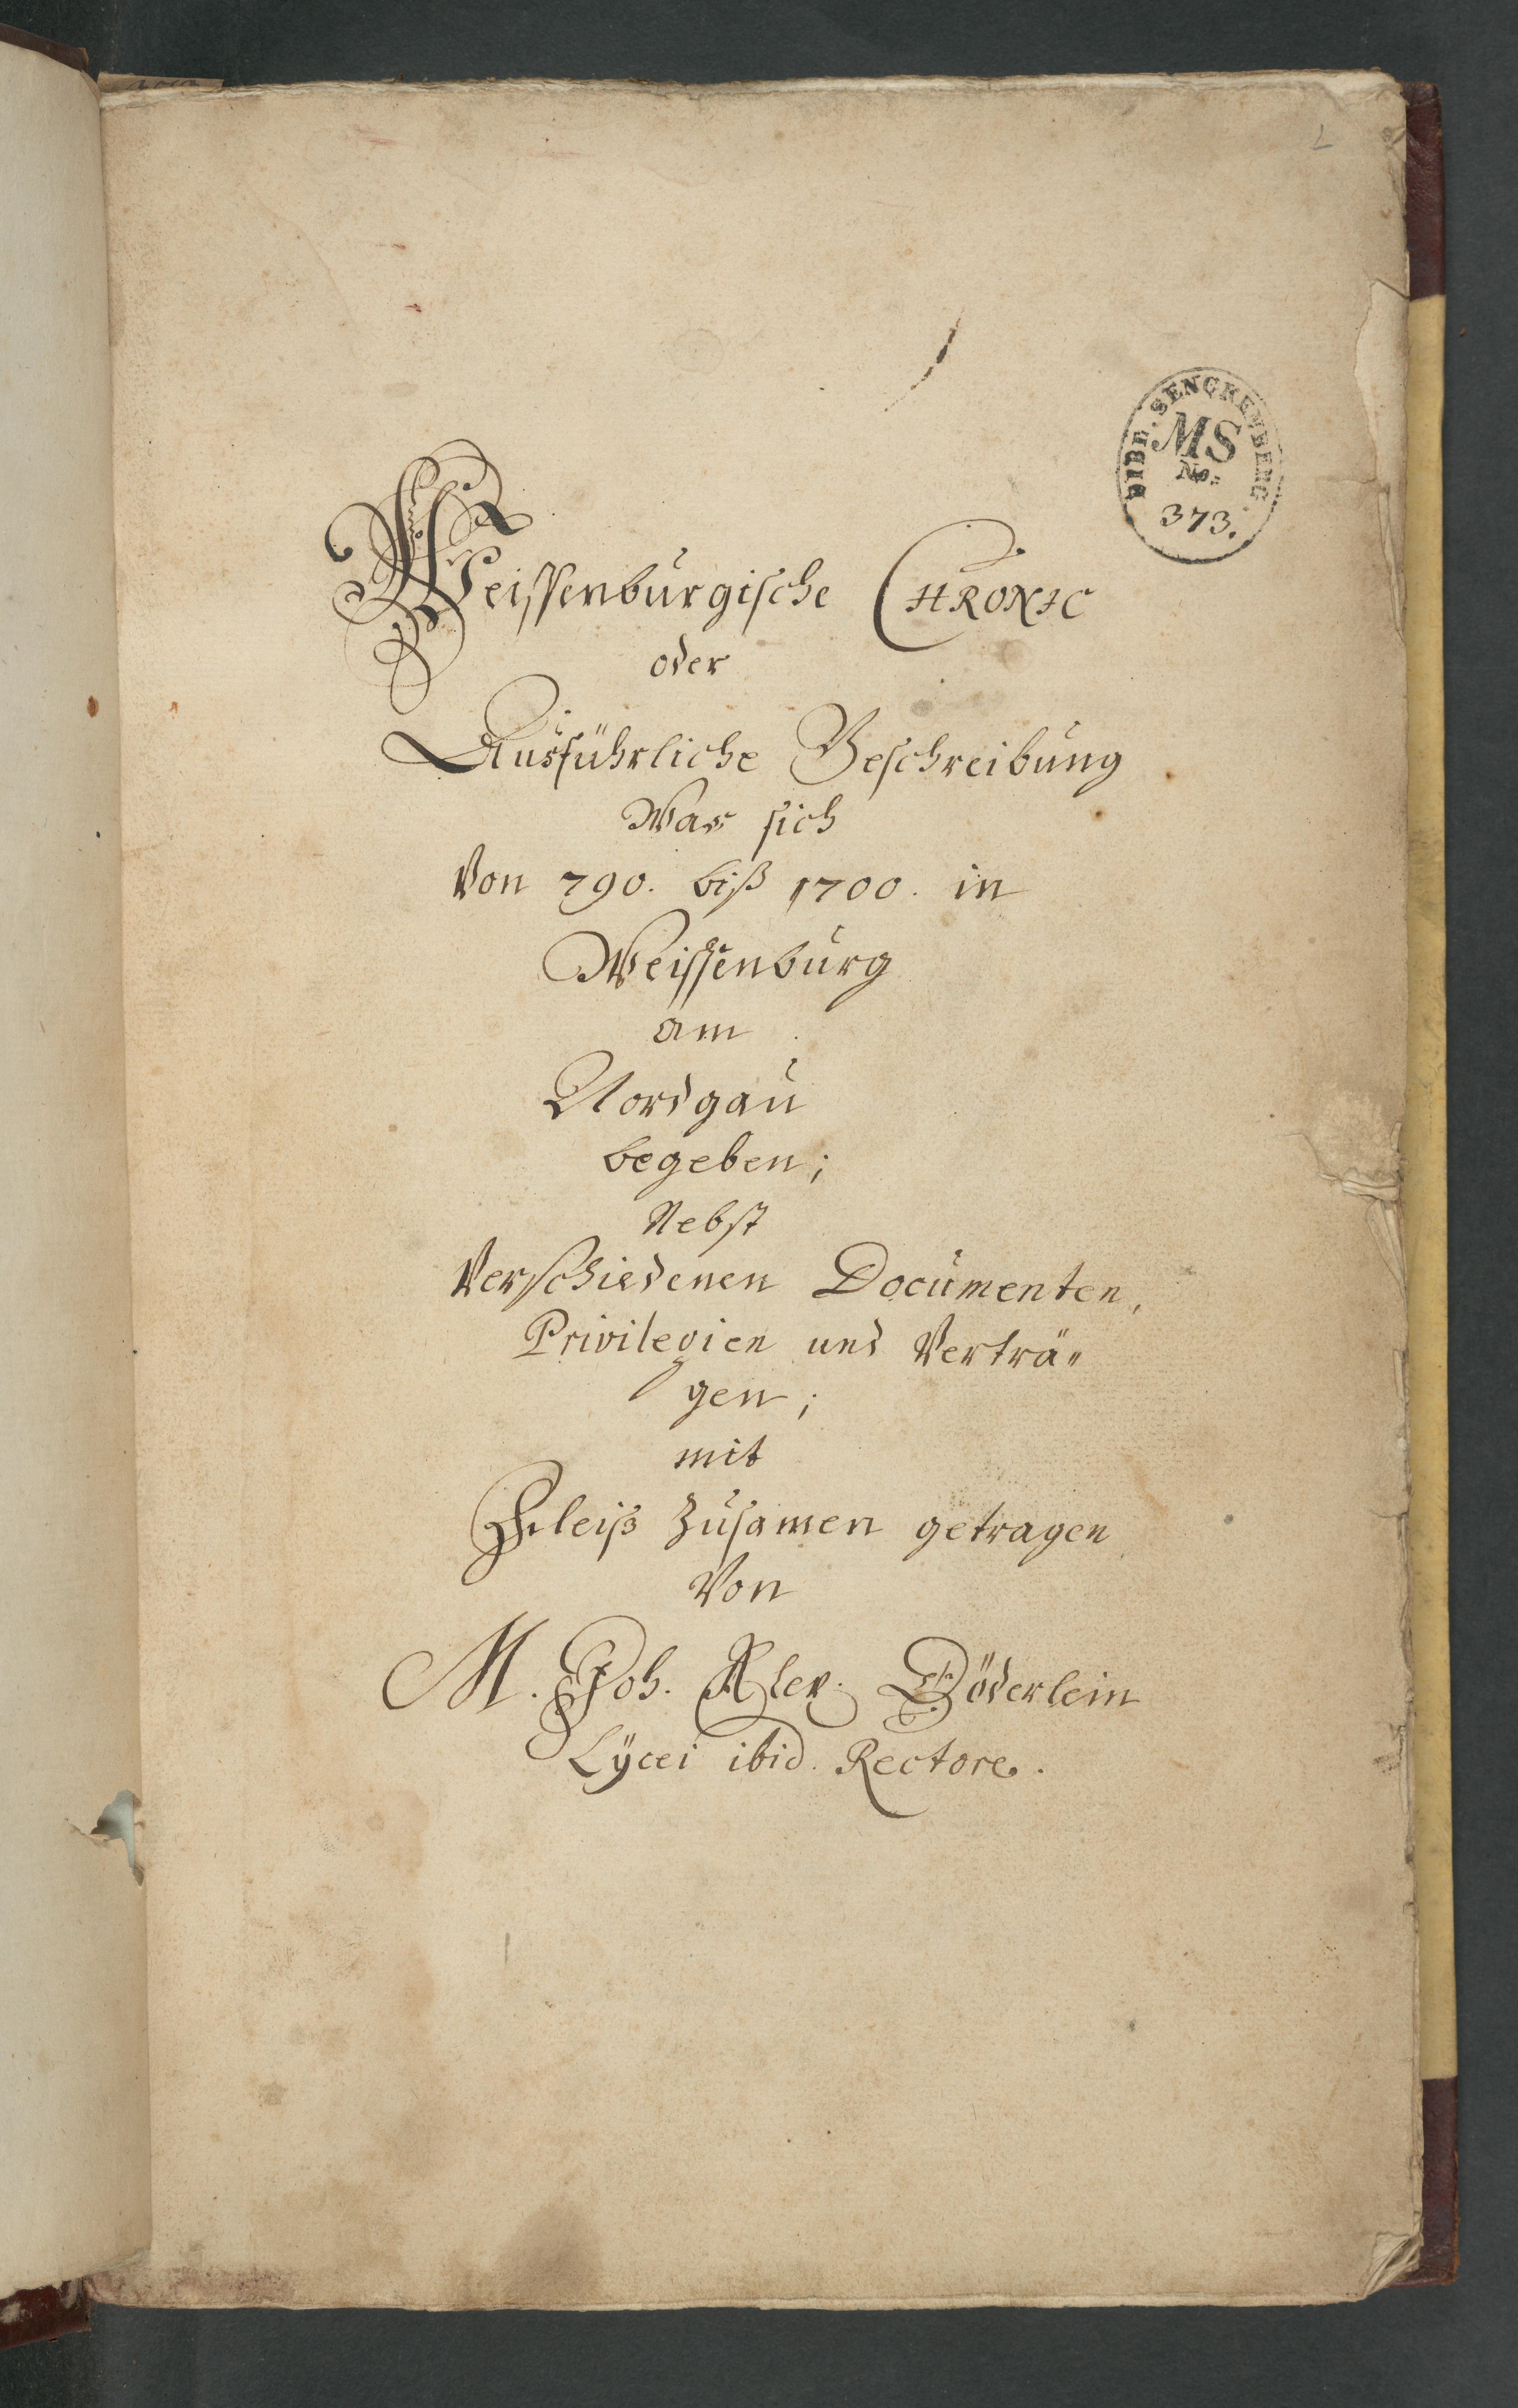 BIBL. SENCKENBERG.
MS
No.
373.
Weissenburgische CHRONIC
oder
Ausführliche Beschreibung
Was sich
Von 790. biß 1700. in
Weissenburg
am
Nordgau
begeben;
Nebst
Verschiedenen Documenten,
Privilegien und Verträ„
gen;
mit
Fleiß Zusamen getragen
Von
M. Joh. Alex. Döderlein
Lÿcei ibid. Rectore.